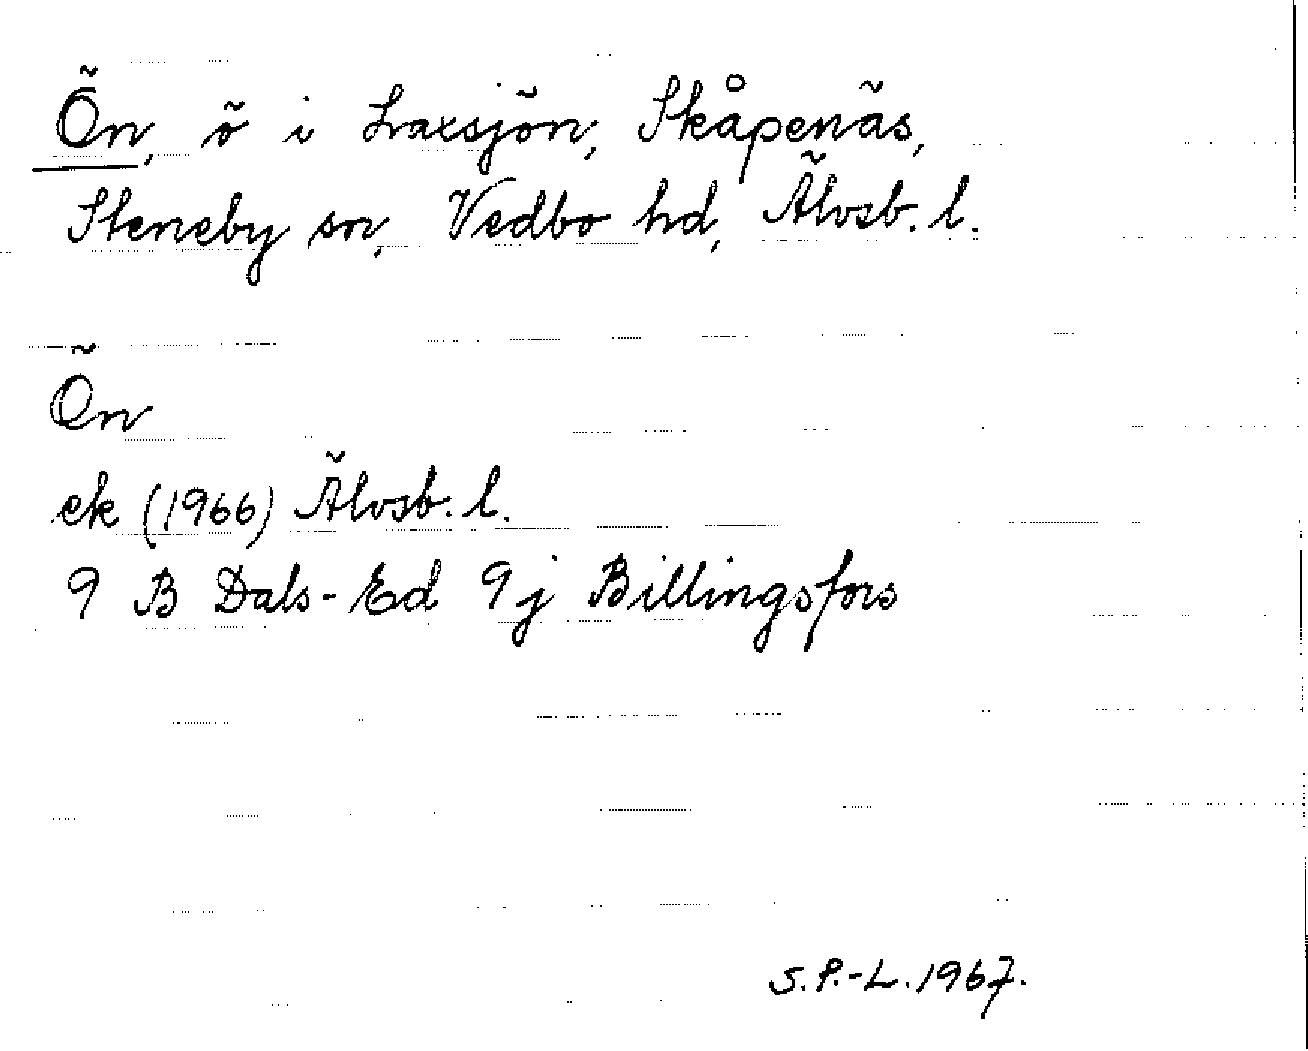 Ön, ö i Laxsjön, Skåpenäs,
Steneby sn, Vedbo hd, Älvsb. l.
Ön
ek (1966) Älvsb. l.
9 B Dals-Ed 9j Billingsfors
S.P.-L. 1967.